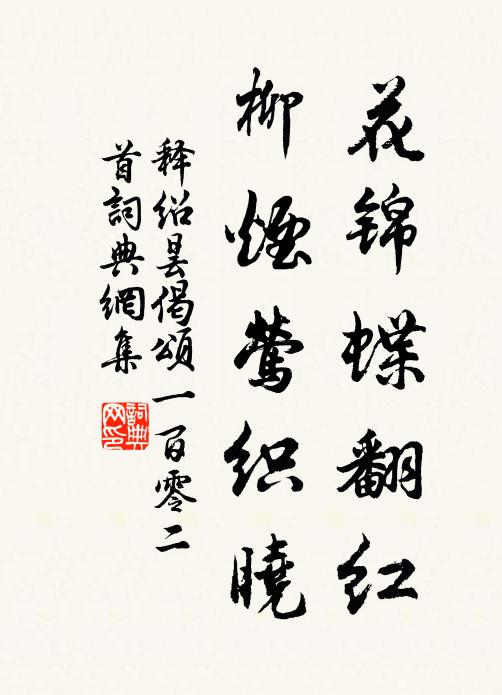 花锦蝶翻红
柳煙莺织曉
释绍昙偈頌一百零二
首詞典網集
詞典
网印